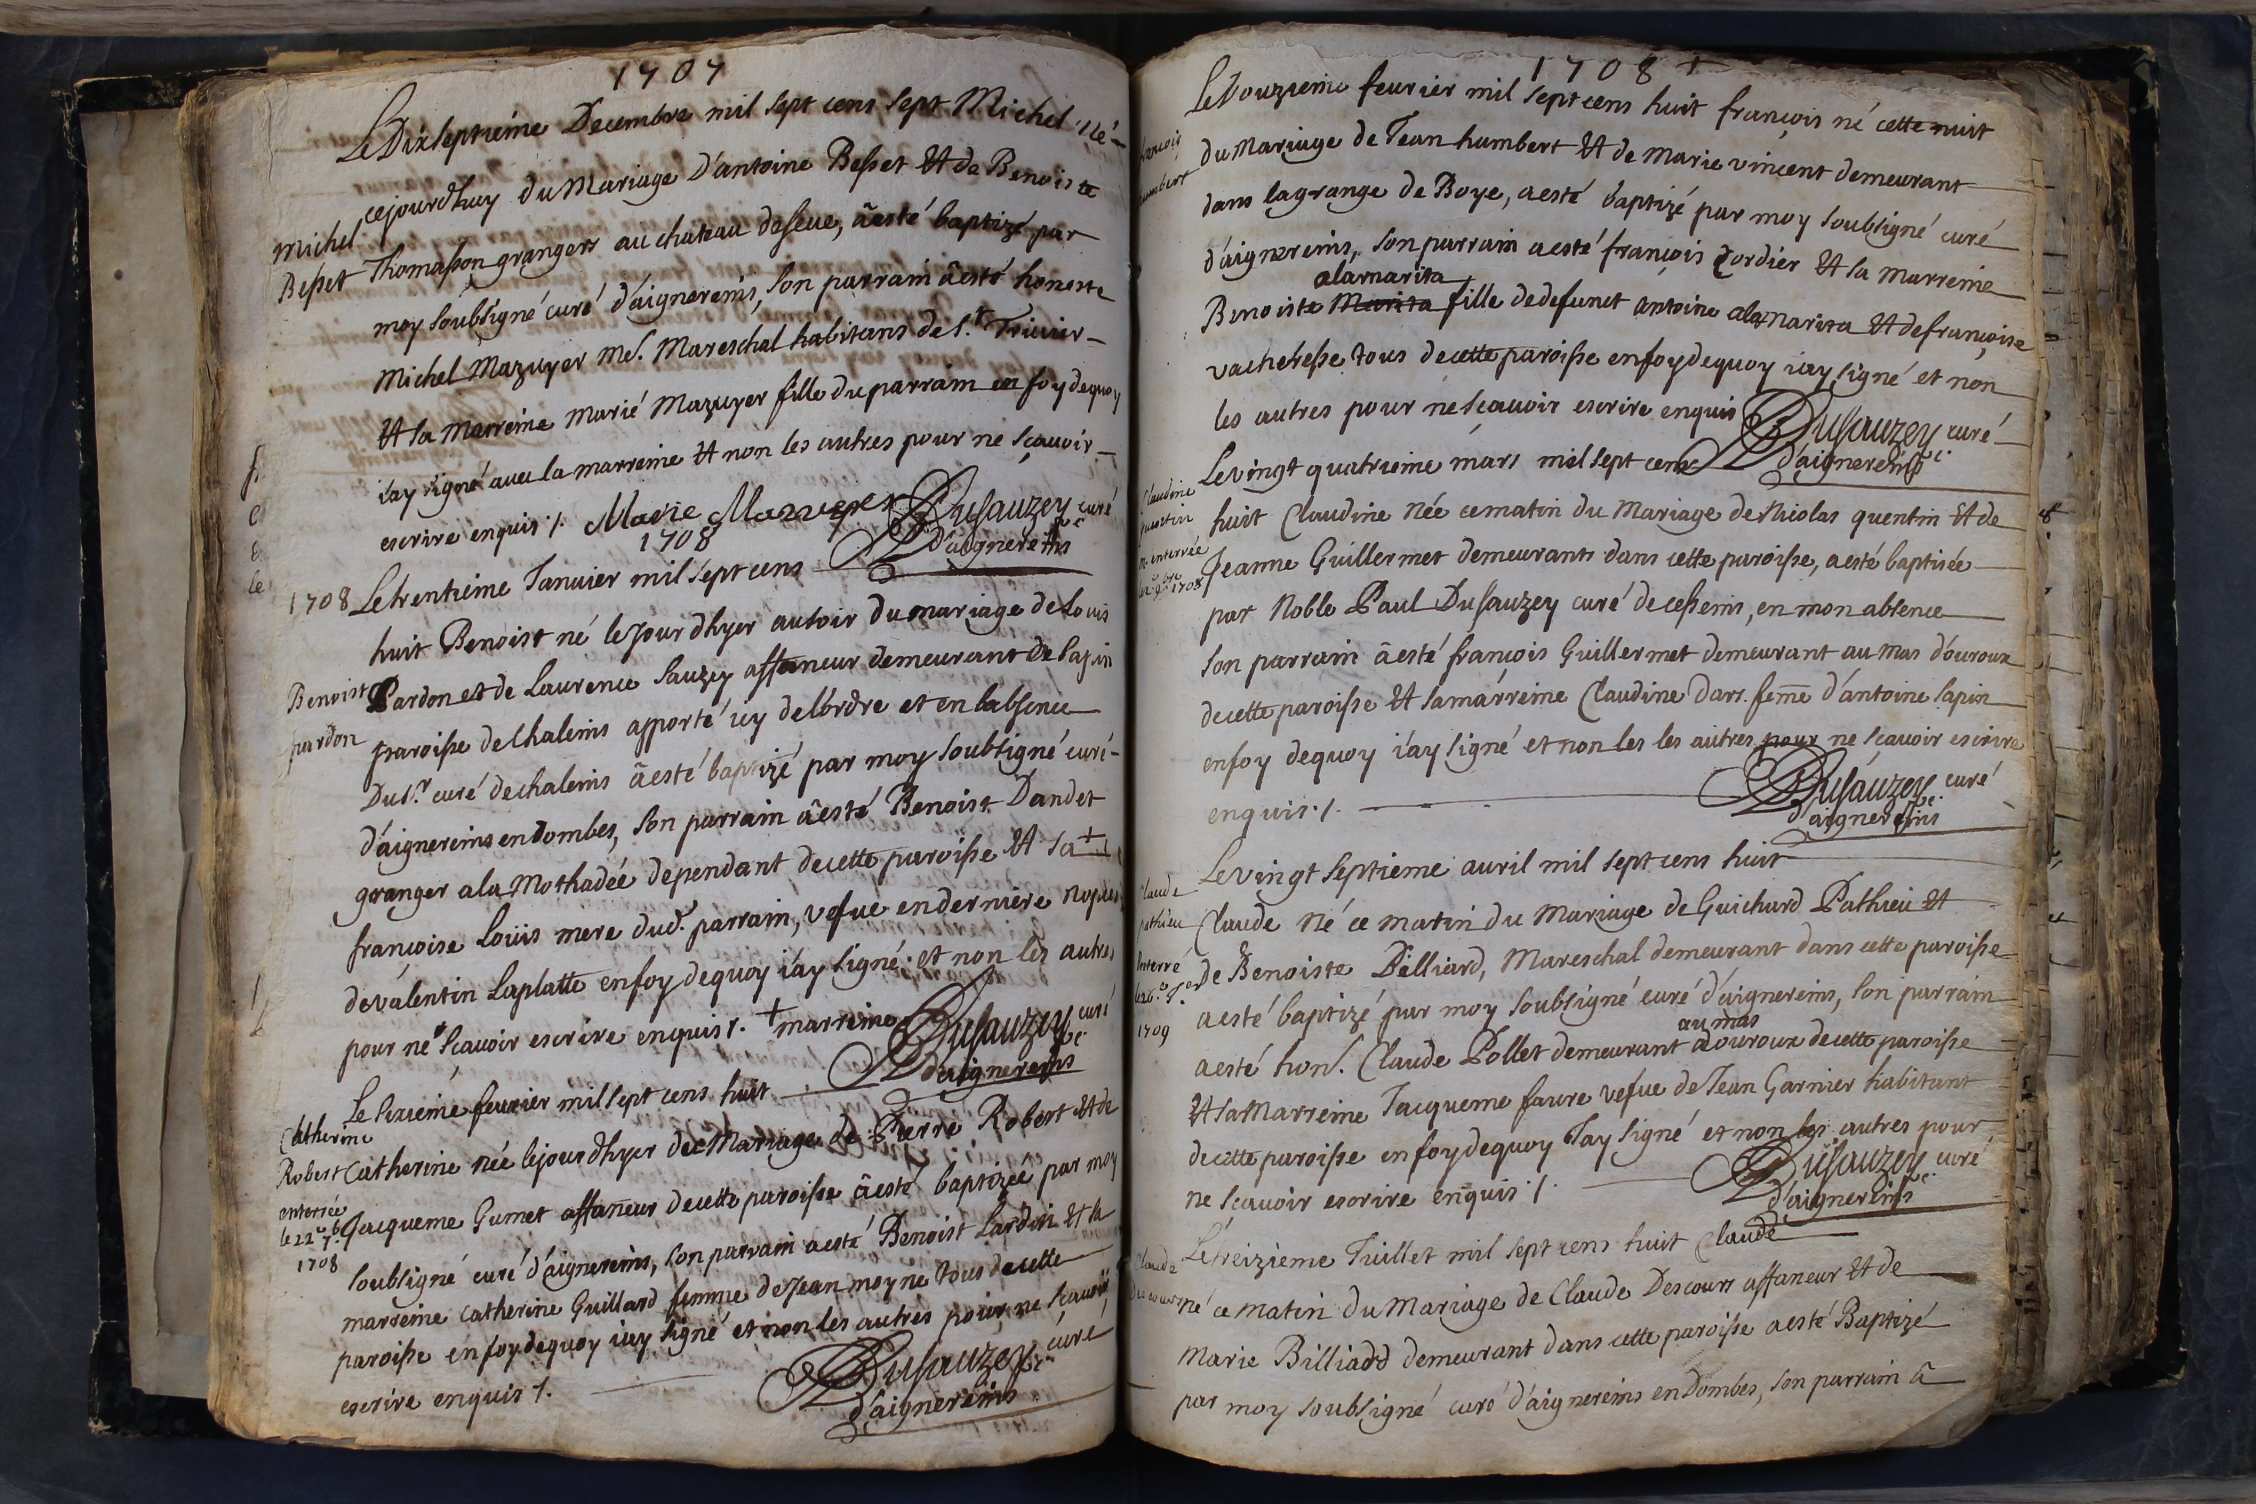 1707
Le Dixseptieme Decembre mil sept cens sept Michel Né
cejourdhuy du Mariage d'antoine Besset Et de Benoiste
Michel
Besset
Thomasson grangers au chateau deseue, a esté baptizé par
moy soubsigné curé d'aignereins, son parrain a esté honeste
Michel Mazuyer me. Mareschal habitans de St. Triuier
Et sa marreine Marié Mazuyer fille du parrain en foy dequoy
i'ay signé auec la marreine Et non les autres pour ne sçauoir
escrire enquis /. Marie Mazuyer Dusauzey curé
d'aignereins
1708
1708 Le trentieme Januier mil sept cens
huit Benoist né le jour dhyer au soir du mariage de Louis
Benoist
pardon
Pardon et de Laurence Sauzey affaneur demeurant de Sapin
paroisse de Chaleins apporté icy de l'ordre et en l'absence
Du sr. curé de chaleins a esté baptizé par moy soubsigné curé
d'aignereins en Dombes, son parrain a esté Benoist Dandet
granger a la Mothadée dependant de cette paroisse Et sa +
françoise Loüis mere dud. parrain, vefue en derniere nopces
de valentin Laplatte en foy dequoy i'ay signé et non les autres
pour ne sçauoir escrire enquis /. + marreine Dusauzey curé
d'aignereins
Le Sixieme feurier mil sept cens huit
Catherine
Robert
enterrée
le 22e 7b.
1708
Catherine née le jour dhyer du Mariage de Pierre Robert Et de
Jacqueme Gumet affaneur de cette paroisse a esté baptizée par moy
soubsigné curé d'aignereins, son parrain a esté Benoist Lardin Et sa
marreine Catherine Guillard femme de Jean moyne tous de cette
paroisse en foy dequoy i'ay signé et non les autres pour ne sçauoir
escrire enquis /. Dusauzey curé
d'aignereins
1708 +
Le Douzieme feurier mil sept cens huit françois né cette nuit
françois
humbert
du Mariage de Jean humbert Et de Marie vincent demeurant
dans la grange de Boye, a esté baptizé par moy soubsigné curé
d'aignereins, son parrain a esté françois Cordier Et sa marreine
alamarita
Benoiste Marita fille de defunct antoine alamarita Et de françoise
vacheresse tous de cette paroisse en foy dequoy i'ay signé et non
les autres pour ne scauoir escrire enquis Dusauzey curé
d'aignereins
Le vingt quatrieme mars mil sept cens
Claudine
quentin
enterrée
1708
huit Claudine Née ce matin du Mariage de Nicolas quentin Et de
Jeanne Guillermet demeurants dans cette paroisse, a esté baptisée
par Noble Paul Dusauzey curé de cesseins, en mon absence
son parrain a esté françois Guillermet demeurant au mas d'ouroux
de cette paroisse Et sa marreine Claudine Dars. feme d'antoine Sapin
en foy dequoy i'ay signé et non les les autres pour ne scauoir escrire
enquis /. Dusauzey curé
d'aignereins
Le vingt septieme auril mil sept cens huit
Claude
pathieu
Enterré
1709
Claude Né ce matin du Mariage de Guichard Pathieu Et
de Benoiste Billiard, Mareschal demeurant dans cette paroisse
a esté baptizé par moy soubsigné curé d'aignereins, son parrain
au mas
a esté hon. Claude Pollet demeurant a ouroux de cette paroisse
Et sa Marreine Jacqueme faure vefue de Jean Garnier habitant
de cette paroisse en foy dequoy J'ay signé et non les autres pour
ne scauoir escrire enquis /. Dusauzey curé
d'aignereins
Le treizieme Juillet mil sept cens huit Claude
Claude
Descours
né ce matin du Mariage de Claude Descours affaneur Et de
Marie Billiard demeurant dans cette paroisse a esté Baptizé
par moy soubsigné curé d'aignereins en Dombes, son parrain a